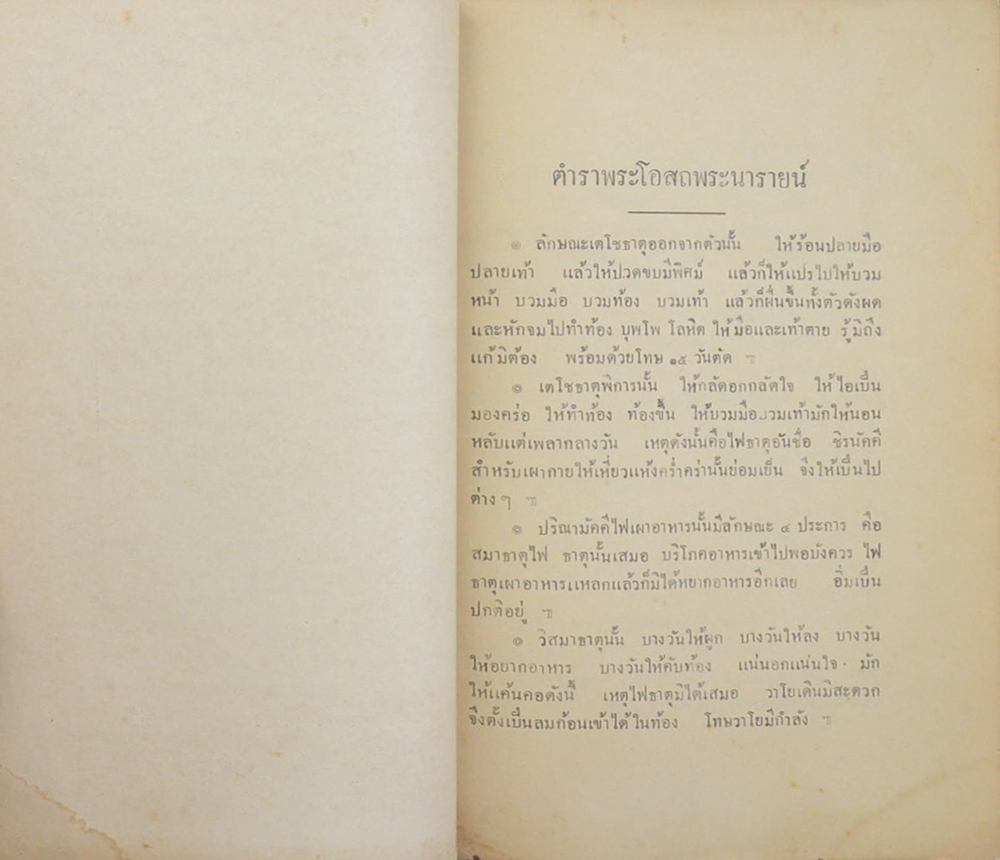 ตำราพระโอสถพระนารายน์
๏ ลักษณะเตโชธาตุออกจากตัวนั้น ให้ร้อนปลายมือ
ปลายเท้า แล้วให้ปวดขบมีพิศม์ แล้วก็ให้แปรไปให้บวม
หน้า บวมมือ บวมท้อง บวมเท้า แล้วก็ผื่นขึ้นทั้งตัวดังผด
และหักจมไปทำท้อง บุพโพ โลหิต ให้มือและเท้าตาย รู้มิถึง
แก้มิต้อง พร้อมด้วยโทษ ๑๕ วันตัด ฯ
๏ เตโชธาตุพิการนั้น ให้กลัดอกกลัดใจ ให้ไอเป็น
มองคร่อ ให้ทำท้อง ท้องขึ้น ให้บวมมือบวมเท้ามักให้นอน
หลับแต่เพลากลางวัน เหตุดังนั้นคือไฟธาตุอันชื่อ ชิรนัคคี
สำหรับเผากายให้เหี่ยวแห้งคร่ำคร่านั้นย่อมเย็น จึงให้เป็นไป
ต่าง ๆ ฯ
๏ ปริณามัคคีไฟเผาอาหารนั้นมีลักษณะ ๔ ประการ คือ
สมาธาตุไฟ ธาตุนั้นเสมอ บริโภคอาหารเข้าไปพอบังควร ไฟ
ธาตุเผาอาหารแหลกแล้วก็มิได้หยากอาหารอีกเลย อิ่มเป็น
ปกติอยู่ ฯ
๏ วิสมาธาตุนั้น บางวันให้ผูก บางวันให้ลง บางวัน
ให้อยากอาหาร บางวันให้คับท้อง แน่นอกแน่นใจ มัก
ให้แค้นคอดังนี้ เหตุไฟธาตุมิได้เสมอ วาโยเดินมิสะดวก
จึงตั้งเป็นลมก้อนเข้าได้ในท้อง โทษวาโยมีกำลัง ฯ